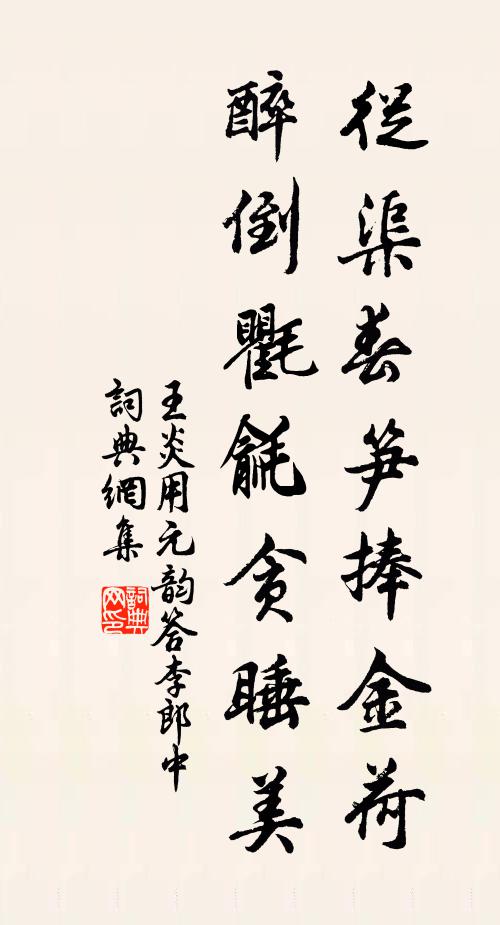 從渠春笋捧金荷
醉倒氍毹貪睡美
王炎用元韵答李郎中
詞典網集
詞典网印